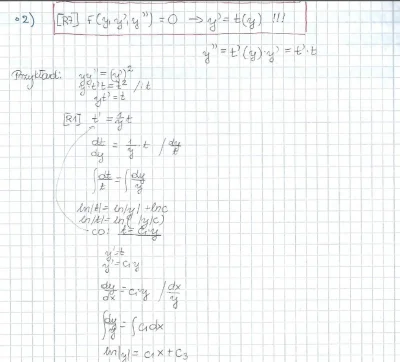 •2) [R7] F(y,y',y'')=0 → y'=t(y) !!!
y''=t'(y)·y'=t'·t
Przykład: yy''=(y')²
y·t't=t² /:t
yt'=t
[R1] t'=1/y t
dt/dy = 1/y t /dy/t
∫dt/t = ∫dy/y
ln|t|=ln|y|+lnC
ln|t|=ln(|y|C)
-CO: t=C₁·y
y'=t
y'=C₁y
dy/dx=C₁·y /dx/y
∫dy/y=∫C₁dx
ln|y|=C₁x+C₃